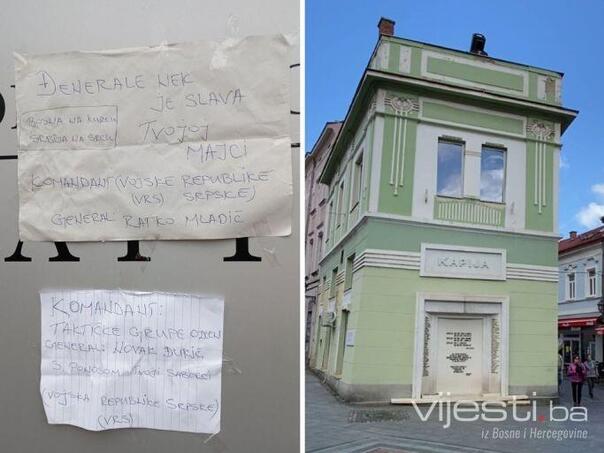 ĐENERALE NEK
JE SLAVA
BOSNA NA KURCU
SRBIJA NA SRCU
TVOJOJ
MAJCI
KOMANDANT (VOJSKE REPUBLIKE
(VRS) SRPSKE)
GENERAL RATKO MLADIČ
KOMANDANT:
TAKTIČKE GRUPE OZREN
GENERAL: NOVAK ĐUKIČ
S PONOSOM TVOJI SABORCI
(VOJSKA REPUBLIKE SRPSKE)
(VRS)
KAPIJA
vijesti.ba
iz Bosne i Hercegovine